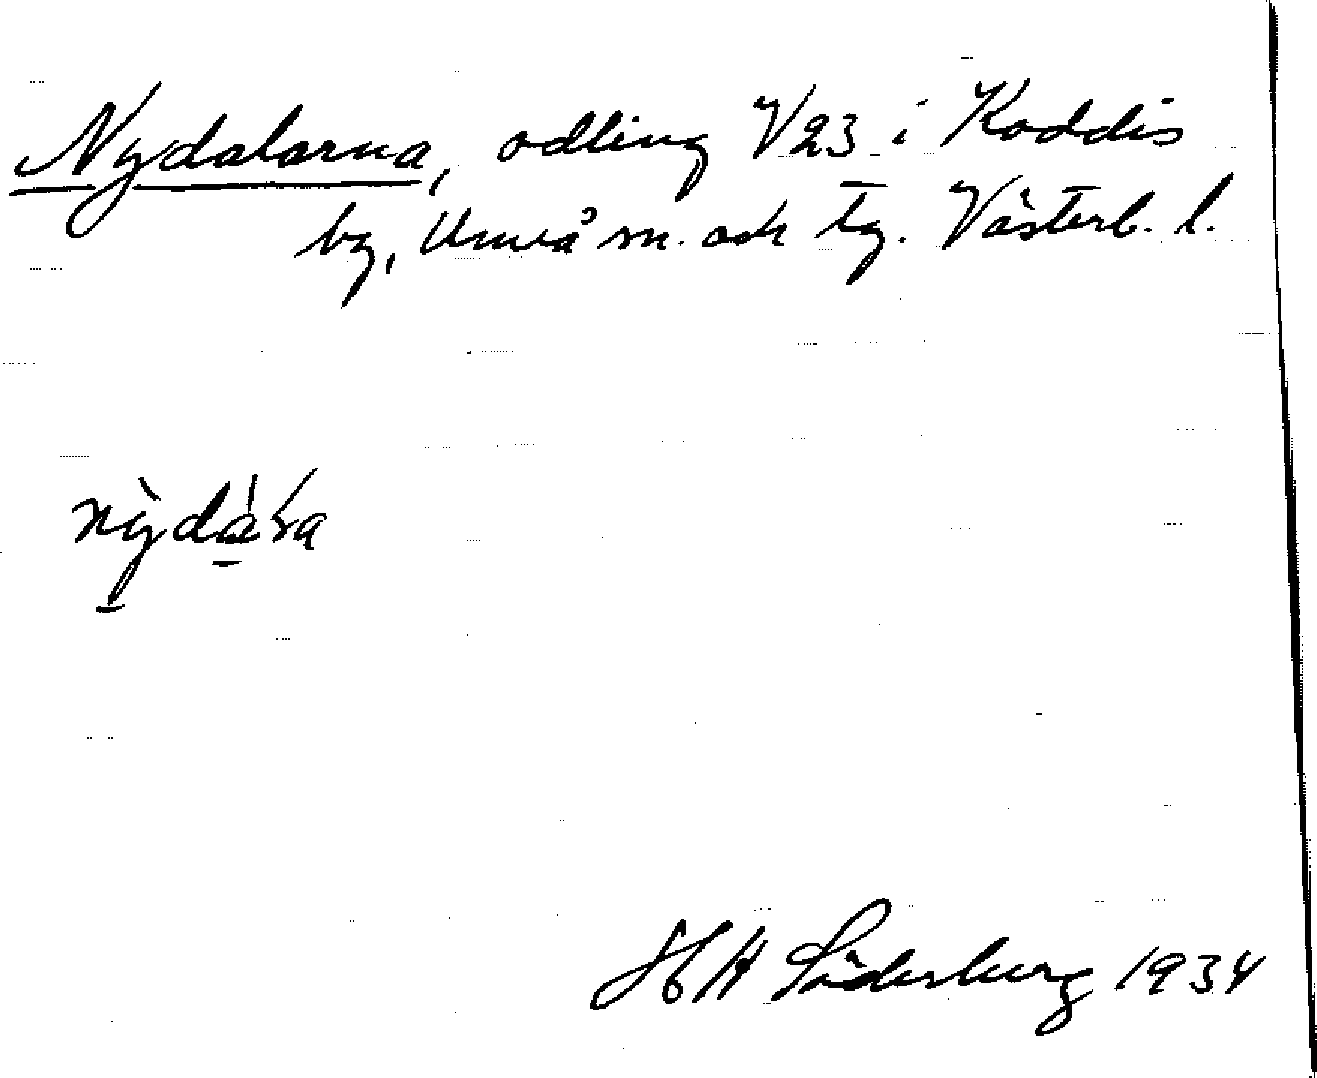 Nydalarna, odling V23 i Koddis
by, Umeå sn. och tg. Västerb. l.
H A Söderberg 1934